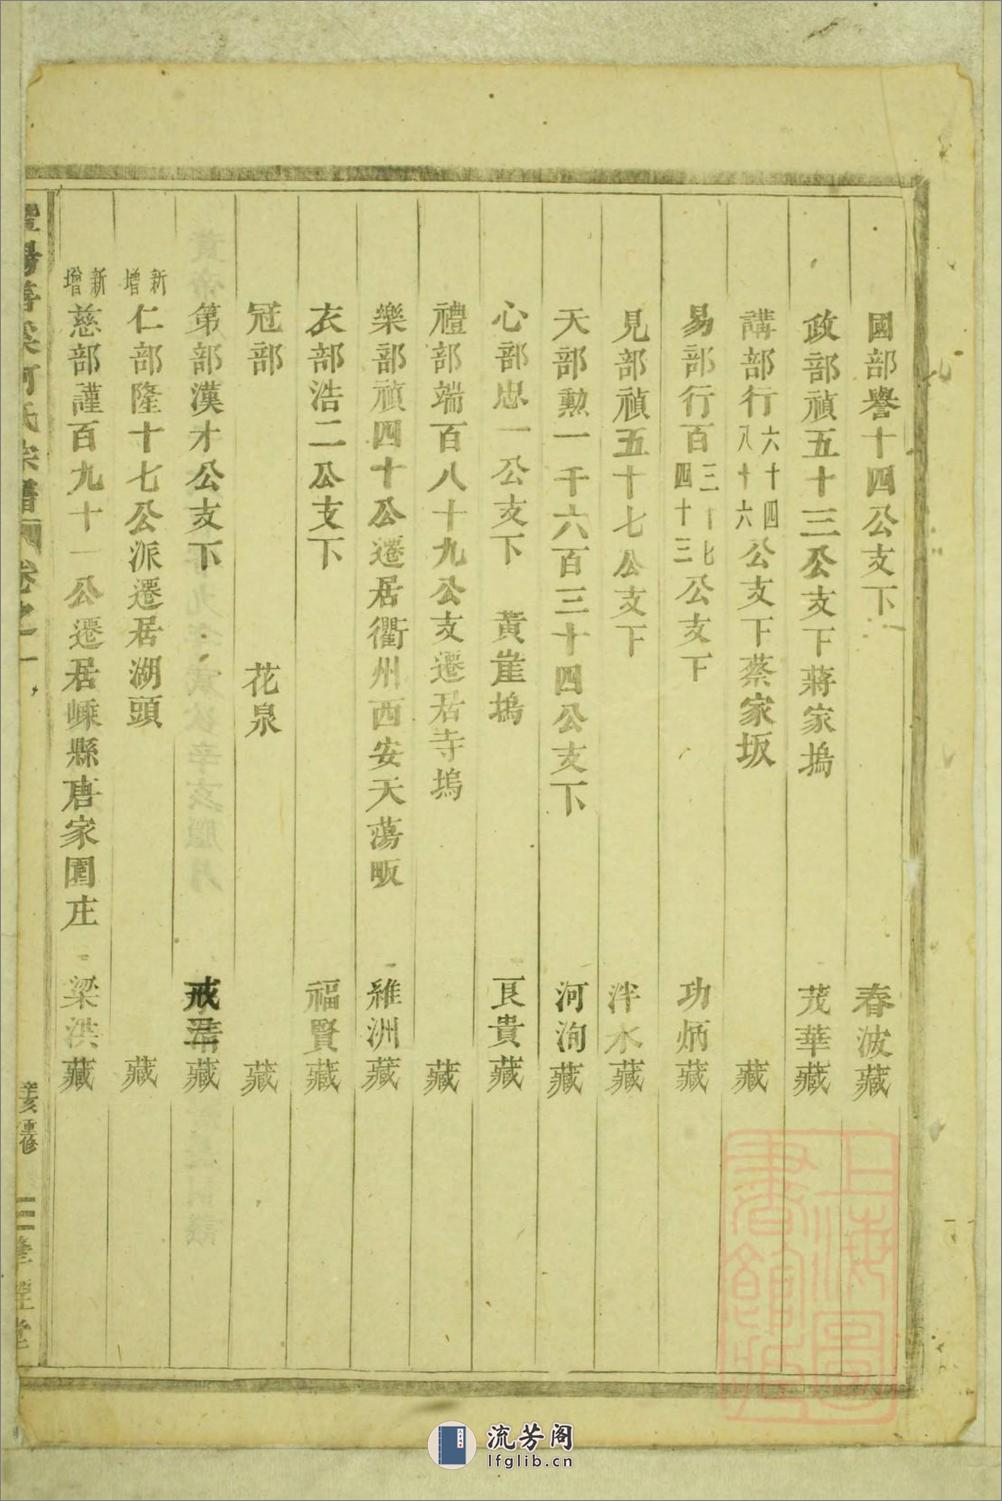 國部譽十四公支下 春波藏
政部禎五十三公支下蔣家塢 茂華藏
講部行六十四八十六公支下蔡家坂 藏
易部行百三十七四十三公支下 功炳藏
見部禎五十七公支下 泮水藏
天部勲一千六百三十四公支下 河洵藏
心部忠一公支下 黄崖塢 良貴藏
禮部端百八十九公支遷居寺塢 藏
樂部禎四十公遷居衢州西安天蕩畈 維洲藏
衣部浩二公支下 福賢藏
冠部 花泉 藏
第部漢才公支下 藏
新增仁部隆十七公派遷居湖頭 藏
新增慈部謹百九十一公遷居嵊縣唐家園庄 梁洪藏
何氏宗譜 卷之一 辛亥重修
上海图書館藏
流芳阁
lfglib.cn